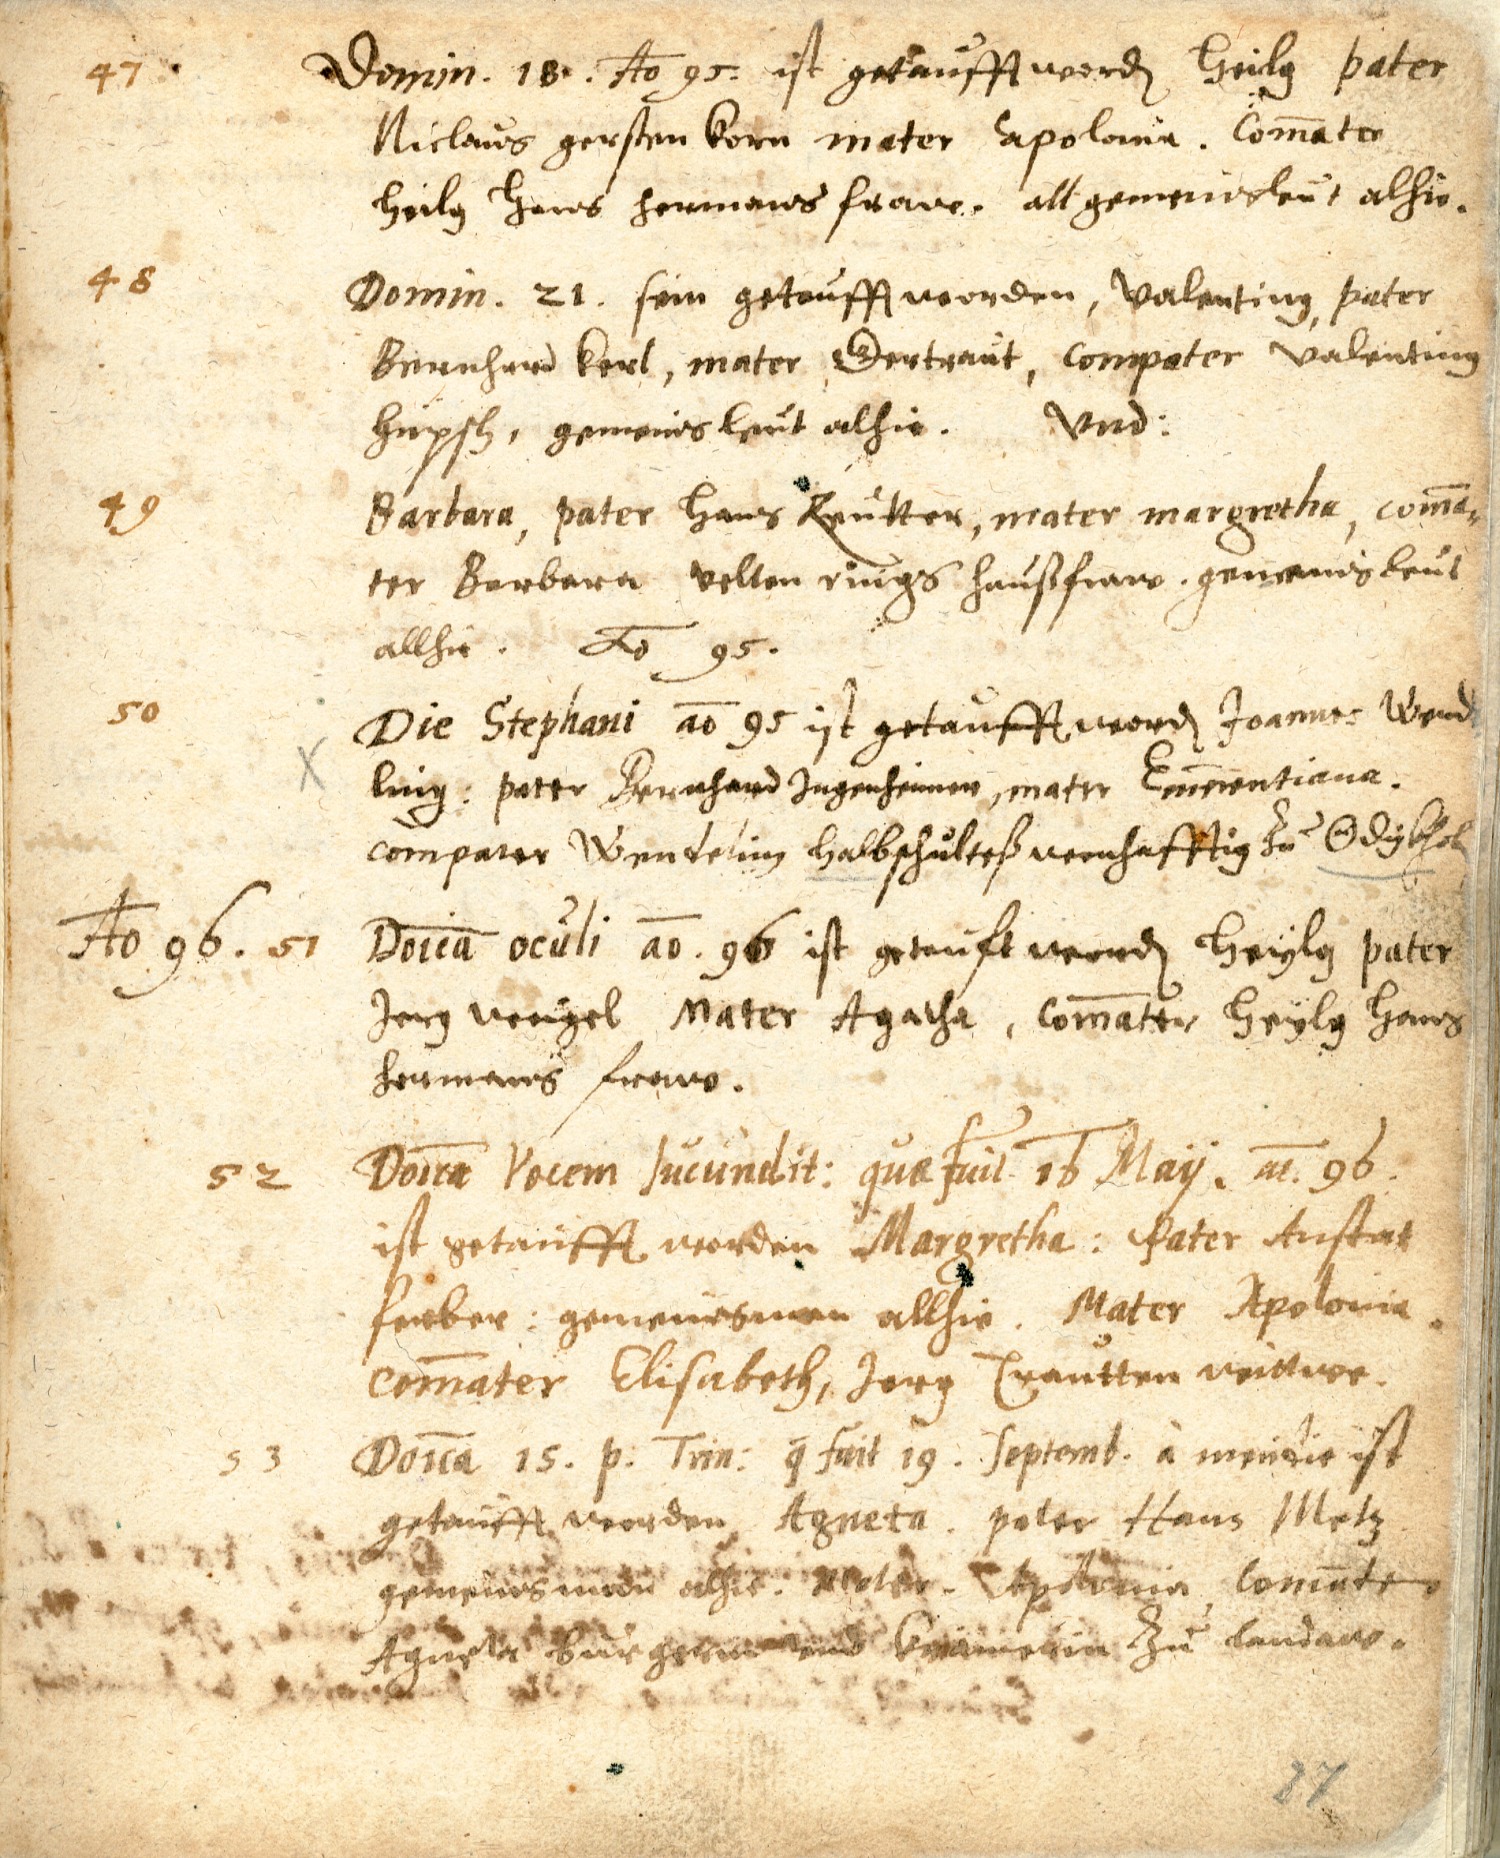 47 Domin. 18. Ao 95. ist getaufft word Heilg pater
Niclaus gersten korn mater Apolonia. Com̄ater
Heilg Hans Hermans fraw. all gemeinsleut alhie.
48 Domin. 21. sein getaufft worden, Valenting, pater
Bernhard kerl, mater Gertraut, compater Valenting
Hüpsch, gemeinsleut alhie. Vnd:
49 Barbara, pater Hans Reütter, mater margretha, com̄a-
ter Barbara Velten rings haußfraw. gemeinsleut
allhie. Ao 95.
50 Die Stephani ao 95 ist getaufft word Joannes Wend
ling: pater Bernhard Ingenheimer, mater Em̄erentiana.
compater Wendeling halbschulteß wonhafftig zu
Ao 96. 51 Doīca oculi ao. 96 ist getauft word Heylg pater
Jerg weygel Mater Agatha, Com̄ater Heylg Hans
Hermans fraw.
52 Doīca Vocem Jucundit: qua fuit 16 Maij. ao. 96.
ist getaufft worden Margretha: Pater Anstat
ferber: gemeinsman allhie. Mater Apolonia.
com̄ater Elisabeth, Jerg Trautten wittwe.
53 Doīca 15. p. Trin: q̄ fuit 19. Septemb. à meridie ist
getaufft worden Agneta. pater Hans Metz
gemeinsman alhie. Mater. Apolonia, Com̄ater
Agneta burgerin vnd krämerin zu landaw.
87